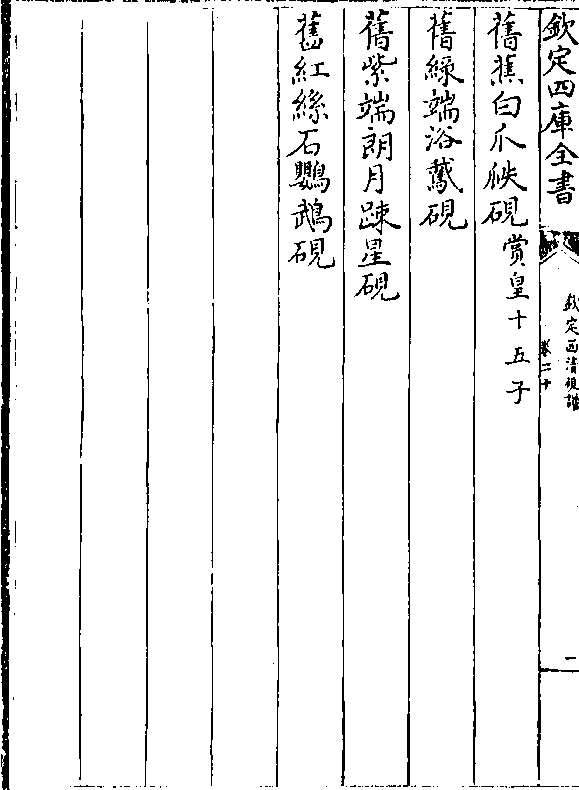 欽定四庫全書
欽定西清硯譜
卷二十
一
舊蕉白瓜瓞硯賞皇十五子
舊綠端浴鵞硯
舊紫端朗月踈星硯
舊紅絲石鸚鵡硯